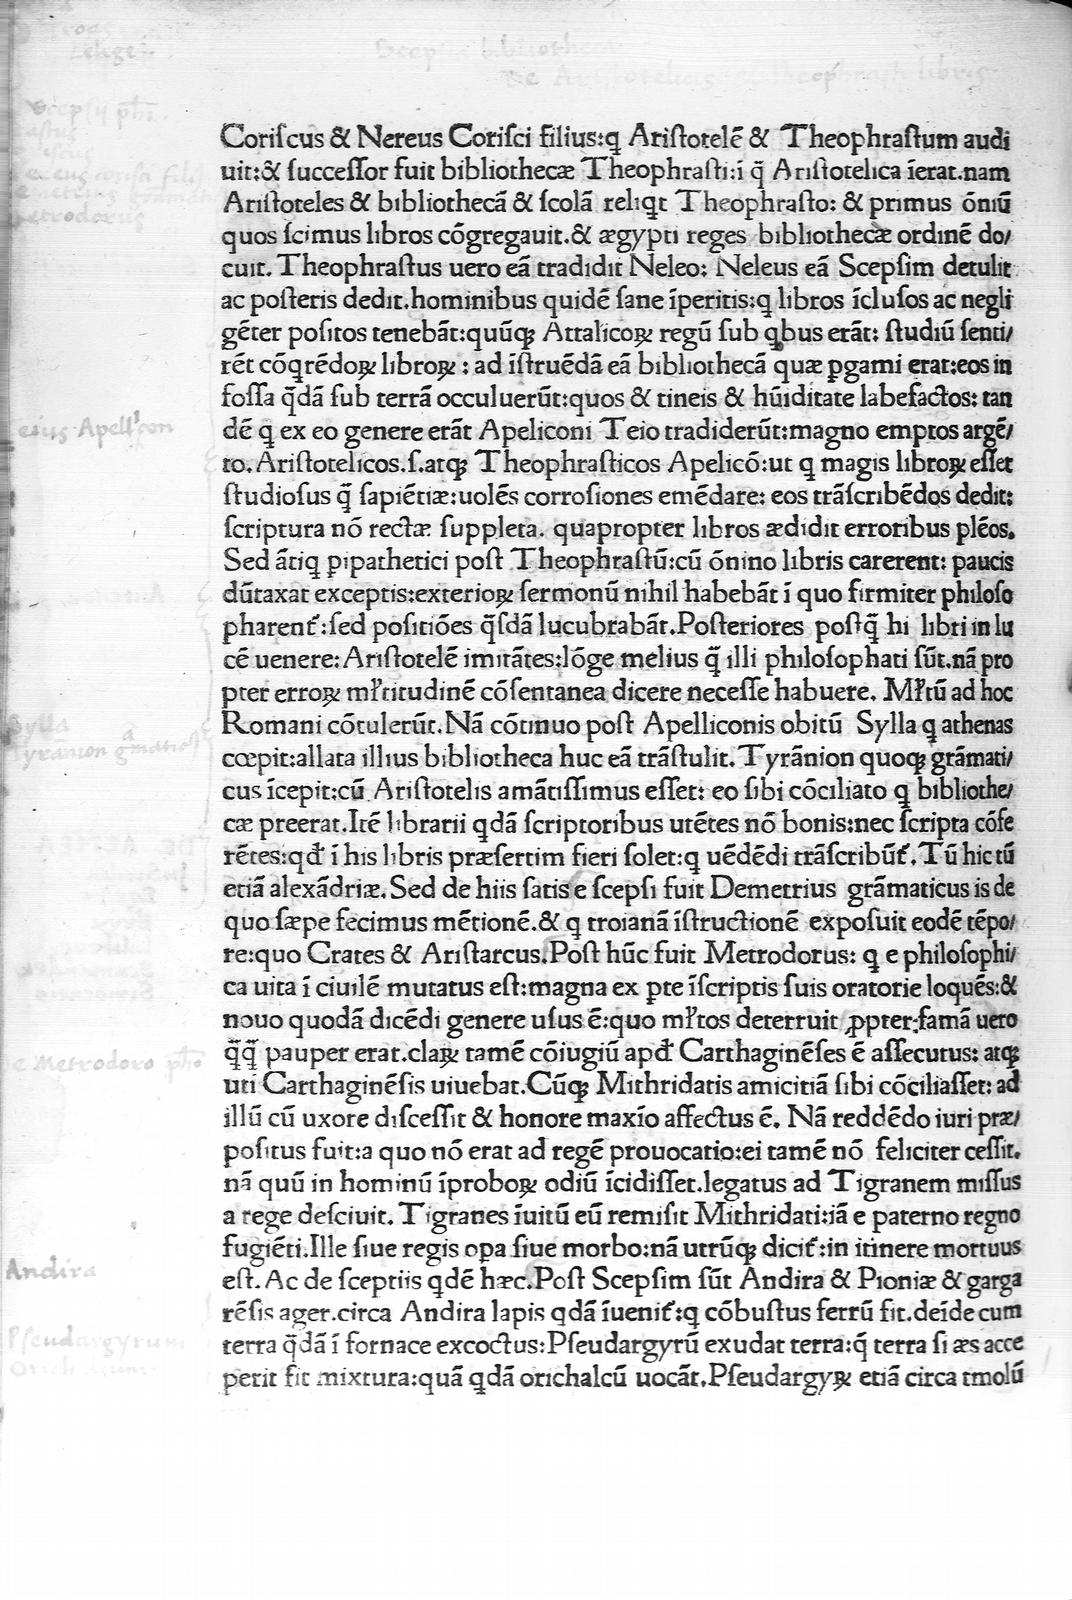 Scepsis bibliotheca
De Aristotelis & Theophrasti libris
Leleges
Scepsij phi.
Metrodorus
Coriſcus & Nereus Coriſci filius:q Ariſtotelē & Theophraſtum audi
uit:& ſucceſſor fuit bibliothecæ Theophraſti:ī q̄ Ariſtotelica īerat.nam
Ariſtoteles & bibliothecā & ſcolā reliqt Theophraſto: & primus ōniū
quos ſcimus libros cōgregauit.& ægypti reges bibliothecæ ordinē do/
cuit. Theophraſtus uero eā tradidit Neleo: Neleus eā Scepſim detulit
ac poſteris dedit.hominibus quidē ſane īperitis:q libros īcluſos ac negli
gēter poſitos tenebāt:quūqꝫ Attalicoꝝ regū ſub qbus erāt: ſtudiū ſenti/
rēt cōqrēdoꝝ libroꝝ : ad īſtruēdā eā bibliothecā quæ ꝑgami erat:eos in
foſſa q̄dā ſub terrā occuluerūt:quos & tineis & hūiditate labefactos: tan
dē q ex eo genere erāt Apeliconi Teio tradiderūt:magno emptos argē/
to. Ariſtotelicos.ſ.atqꝫ Theophraſticos Apelicō:ut q magis libroꝝ eſſet
ſtudioſus q̄ ſapiētiæ:uolēs corroſiones emēdare: eos trāſcribēdos dedit:
ſcriptura nō rectæ ſuppleta. quapropter libros ædidit erroribus plēos.
Sed ātiq pipathetici poſt Theophraſtū:cū ōnino libris carerent: paucis
dūtaxat exceptis:exterioꝝ ſermonū nihil habebāt ī quo firmiter philoſo
pharent᷑:ſed poſitiōes q̄ſdā lucubrabāt.Poſteriores poſtq̄ hi libri in lu
cē uenere: Ariſtotelē imitātes:lōge melius q̄ illi philoſophati ſūt.nā pro
pter erroꝝ mꝉtitudinē cōſentanea dicere neceſſe habuere. Mꝉtū ad hoc
Romani cōtulerūt.Nā cōtinuo poſt Apelliconis obitū Sylla q athenas
cœpit:allata illius bibliotheca huc eā trāſtulit. Tyrānion quoqꝫ grāmati/
cus īcepit:cū Ariſtotelis amātiſſimus eſſet: eo ſibi cōciliato q bibliothe/
cæ preerat.Itē librarii qdā ſcriptoribus utētes nō bonis:nec ſcripta cōfe
rētes:qđ ī his libris præſertim fieri ſolet:q uēdēdi trāſcribūt᷑. Tū hic tū
etiā alexādriæ. Sed de hiis ſatis e ſcepſi fuit Demetrius grāmaticus is de
quo ſæpe fecimus mētionē.& q troianā īſtructionē expoſuit eodē tēpo/
re:quo Crates & Ariſtarcus.Poſt hūc fuit Metrodorus: q e philoſophi/
ca uita ī ciuilē mutatus eſt:magna ex pte īſcriptis ſuis oratorie loquēs:&
nouo quodā dicēdi genere uſus ē:quo mꝉtos deterruit ꝓpter:famā uero
q̄q̄ pauper erat.claꝝ tamē cōiugiū apđ Carthaginēſes ē aſſecutus: atqꝫ
uti Carthaginēſis uiuebat.Cūqꝫ Mithridatis amicitiā ſibi cōciliaſſet: ad
illū cū uxore diſceſſit & honore maxīo affectus ē. Nā reddēdo iuri præ/
poſitus fuit:a quo nō erat ad regē prouocatio:ei tamē nō feliciter ceſſit.
nā quū in hominū īproboꝝ odiū īcidiſſet.legatus ad Tigranem miſſus
a rege deſciuit. Tigranes īuitū eū remiſit Mithridati:iā e paterno regno
fugiēti.Ille ſiue regis opa ſiue morbo:nā utrūqꝫ dicit᷑:in itinere mortuus
eſt. Ac de ſceptiis qdē hæc.Poſt Scepſim ſūt Andira & Pioniæ & garga
rēſis ager.circa Andira lapis qdā īuenit᷑:q cōbuſtus ferrū fit.deīde cum
terra q̄dā ī fornace excoctus:Pſeudargyrū exudat terra:q̄ terra ſi æs acce
perit fit mixtura:quā qdā orichalcū uocāt.Pſeudargyꝝ etiā circa tmolū
eius Apellicon
Sylla
Tyranion
De Metrodoro pho
Andira
Pſeudargyrum